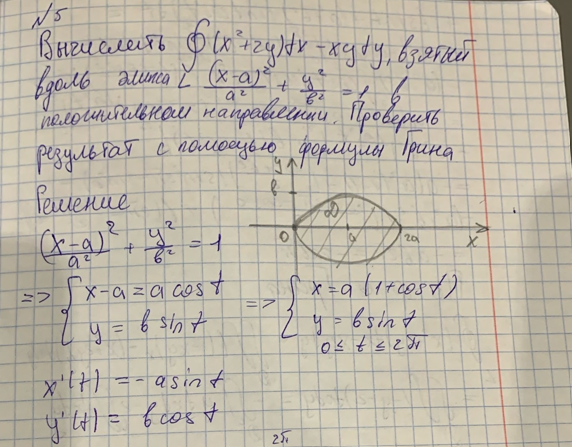 №5
Вычислить ∮(x²+2y)dx - xydy, взятый
вдоль элипса L (x-a)²/a² + y²/b² = 1 в
положительном направлении. Проверить
результат с помощью формулы Грина
Решение
y
b
D
0
a
2a
x
(x-a)²/a² + y²/b² = 1
=> { x-a = a cost
y = b sint
=> { x = a(1+cost)
y = b sint
0 ≤ t ≤ 2π
x'(t) = -a sint
y'(t) = b cost
2π